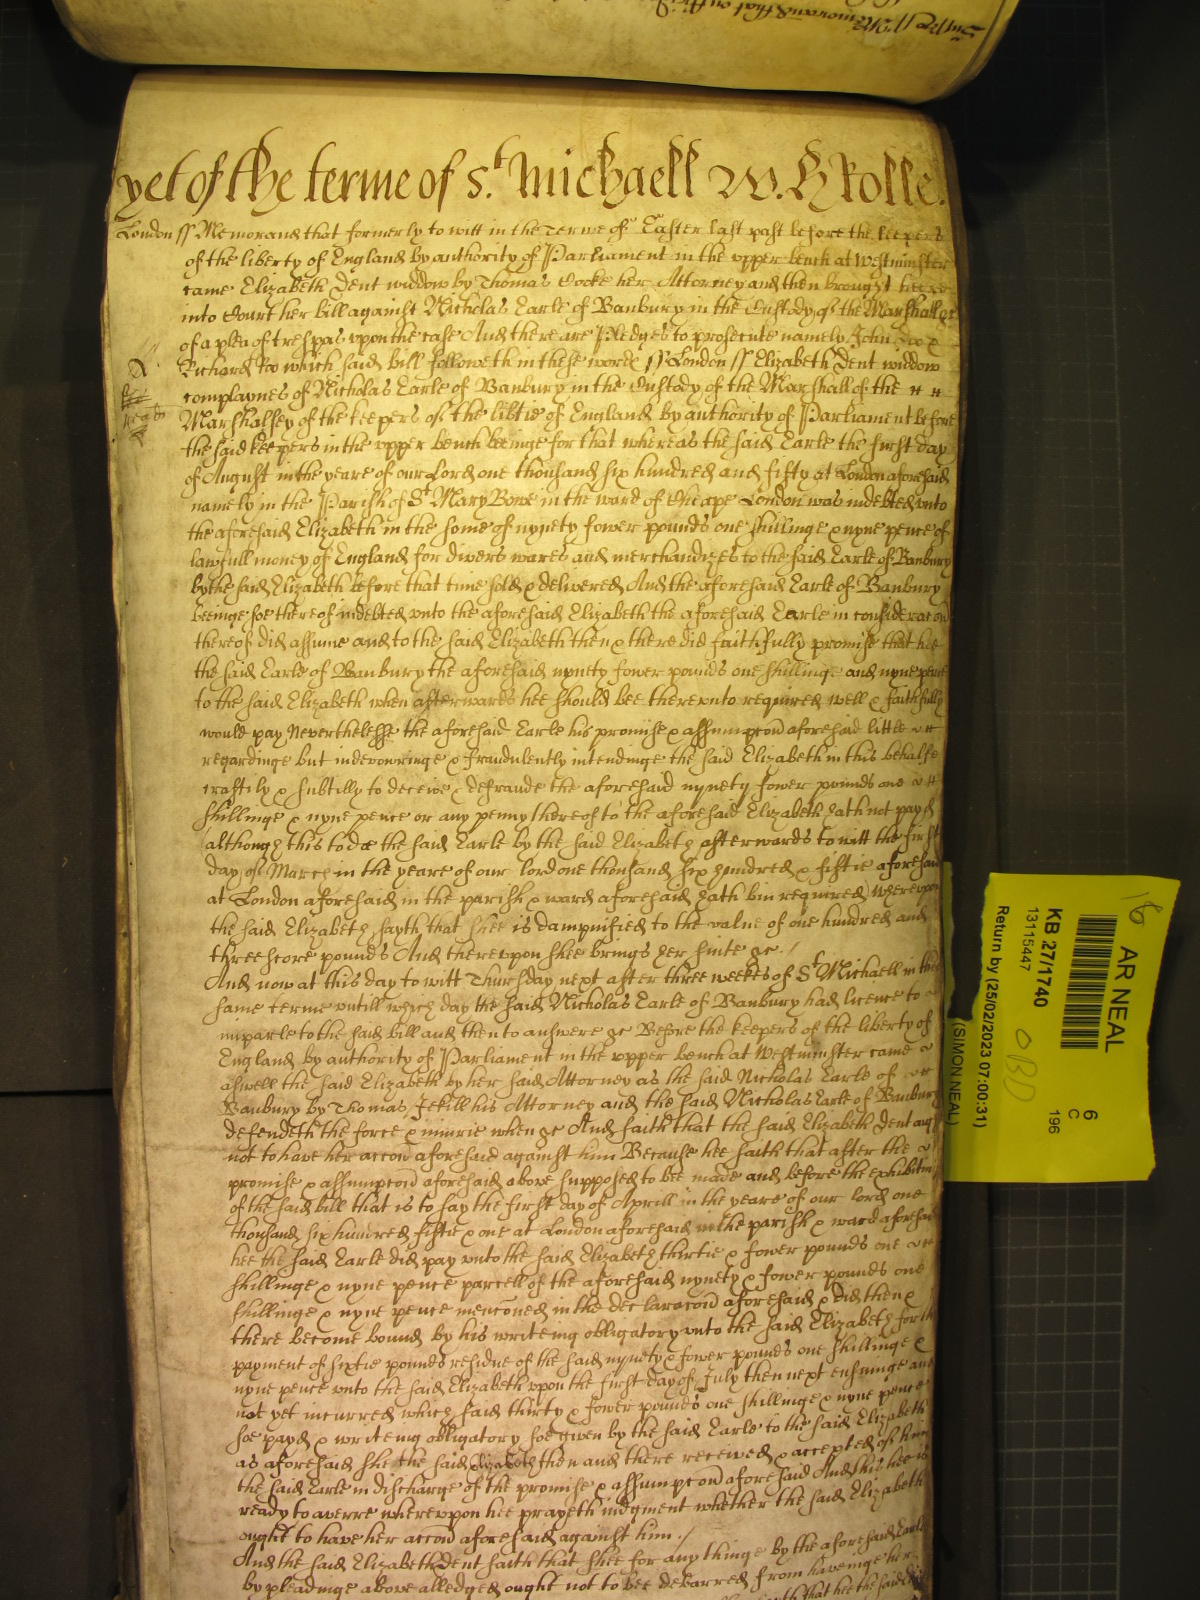 yet of the terme of St. Michaell W. H Rolle.
London ss Memorand that formerly to witt in the Terme of Easter last past before the keepers
of the liberty of England by authority of Parliament in the upper bench at Westminster
came Elizabeth Dent widdow by Thomas Cocke her Attorney and then brought heere
into Court her bill against Nicholas Earle of Banbury in the Custody of the Marshall &c
of a plea of trespas upon the case And there are Pledges to prosecute namely John Doo &
Richard Roo which said bill followeth in these words ss London ss Elizabeth Dent widdow
complaynes of Nicholas Earle of Banbury in the Custody of the Marshall of the
Marshalsey of the keepers of the libtie of England by authority of Parliament before
the said keepers in the upper bench beeinge for that whereas the said Earle the first day
of August in the yeare of our Lord one thousand six hundred and fifty at London aforesaid
namely in the Parish of St Mary Bowe in the ward of Cheape London was indebted unto
the aforesaid Elizabeth in the some of nynety fower pounds one shillinge & nyne pence of
lawfull money of England for divers wares and merchandizes to the said Earle of Banbury
by the said Elizabeth before that time sold & delivered And the aforesaid Earle of Banbury
beeinge soe thereof indebted unto the aforesaid Elizabeth the aforesaid Earle in consideracon
thereof did assume and to the said Elizabeth then & there did faithfully promise that hee
the said Earle of Banbury the aforesaid nynety fower pounds one shillinge and nyne pence
to the said Elizabeth when afterwards hee should bee thereunto required well & faithfully
would pay Neverthelesse the aforesaid Earle his promise & assumpcon aforesaid little
regardinge but indevouringe & fraudulently intendinge the said Elizabeth in this behalfe
craftily & subtilly to deceive & defraude the aforesaid nynety fower pounds one
shillinge & nyne pence or any penny thereof to the aforesaid Elizabeth hath not payd
although this to doe the said Earle by the said Elizabeth afterwards to witt the first
day of March in the yeare of our lord one thousand six hundred & fiftie aforesaid
at London aforesaid in the parish & ward aforesaid hath bin required Whereupon
the said Elizabeth sayth that shee is dampnified to the value of one hundred and
threescore pounds And thereupon shee brings her suite &c./
And now at this day to witt Thursday next after three weekes of St Michaell in the
same terme untill which day the said Nicholas Earle of Banbury had licence to
imparle to the said bill and then to answere &c Before the keepers of the liberty of
England by authority of Parliament in the upper bench at Westminster came
aswell the said Elizabeth by her said Attorney as the said Nicholas Earle of
Banbury by Thomas Jekill his Attorney and the said Nicholas Earle of Banbury
defendeth the force & iniurie when &c And saith that the said Elizabeth Dent ought
not to have her accon aforesaid against him Because hee saith that after the
promise & assumpcon aforesaid above supposed to bee made and before the exhibiting
of the said bill that is to say the first day of Aprill in the yeare of our lord one
thousand six hundred fiftie & one at London aforesaid in the parish & ward aforesaid
hee the said Earle did pay unto the said Elizabeth thirtie & fower pounds one
shillinge & nyne pence parcell of the aforesaid nynety & fower pounds one
shillinge & nyne pence mencioned in the declaracon aforesaid & did then &
there become bound by his writeing obligatory unto the said Elizabeth for the
payment of sixtie pounds residue of the said nynety & fower pounds one shillinge &
nyne pence unto the said Elizabeth upon the first day of July then next ensuinge and
not yet incurred which said thirty & fower pounds one shillinge & nyne pence
soe payd & writeing obligatory soe given by the said Earle to the said Elizabeth
as aforesaid shee the said Elizabeth then and there received & accepted of him
the said Earle in discharge of the promise & assumpcon aforesaid And this hee is
ready to averre whereupon hee prayeth iudgment whether the said Elizabeth
ought to have her accon aforesaid against him ./
And the said Elizabeth Dent saith that shee for any thinge by the aforesaid Earle
by pleadinge above alledged ought not to bee debarred from haveinge her
that hee the said
AR NEAL
KB 27/1740
13115447
Return by (25/02/2023 07:00:31)
(SIMON NEAL)
6
C
196
18
OBD